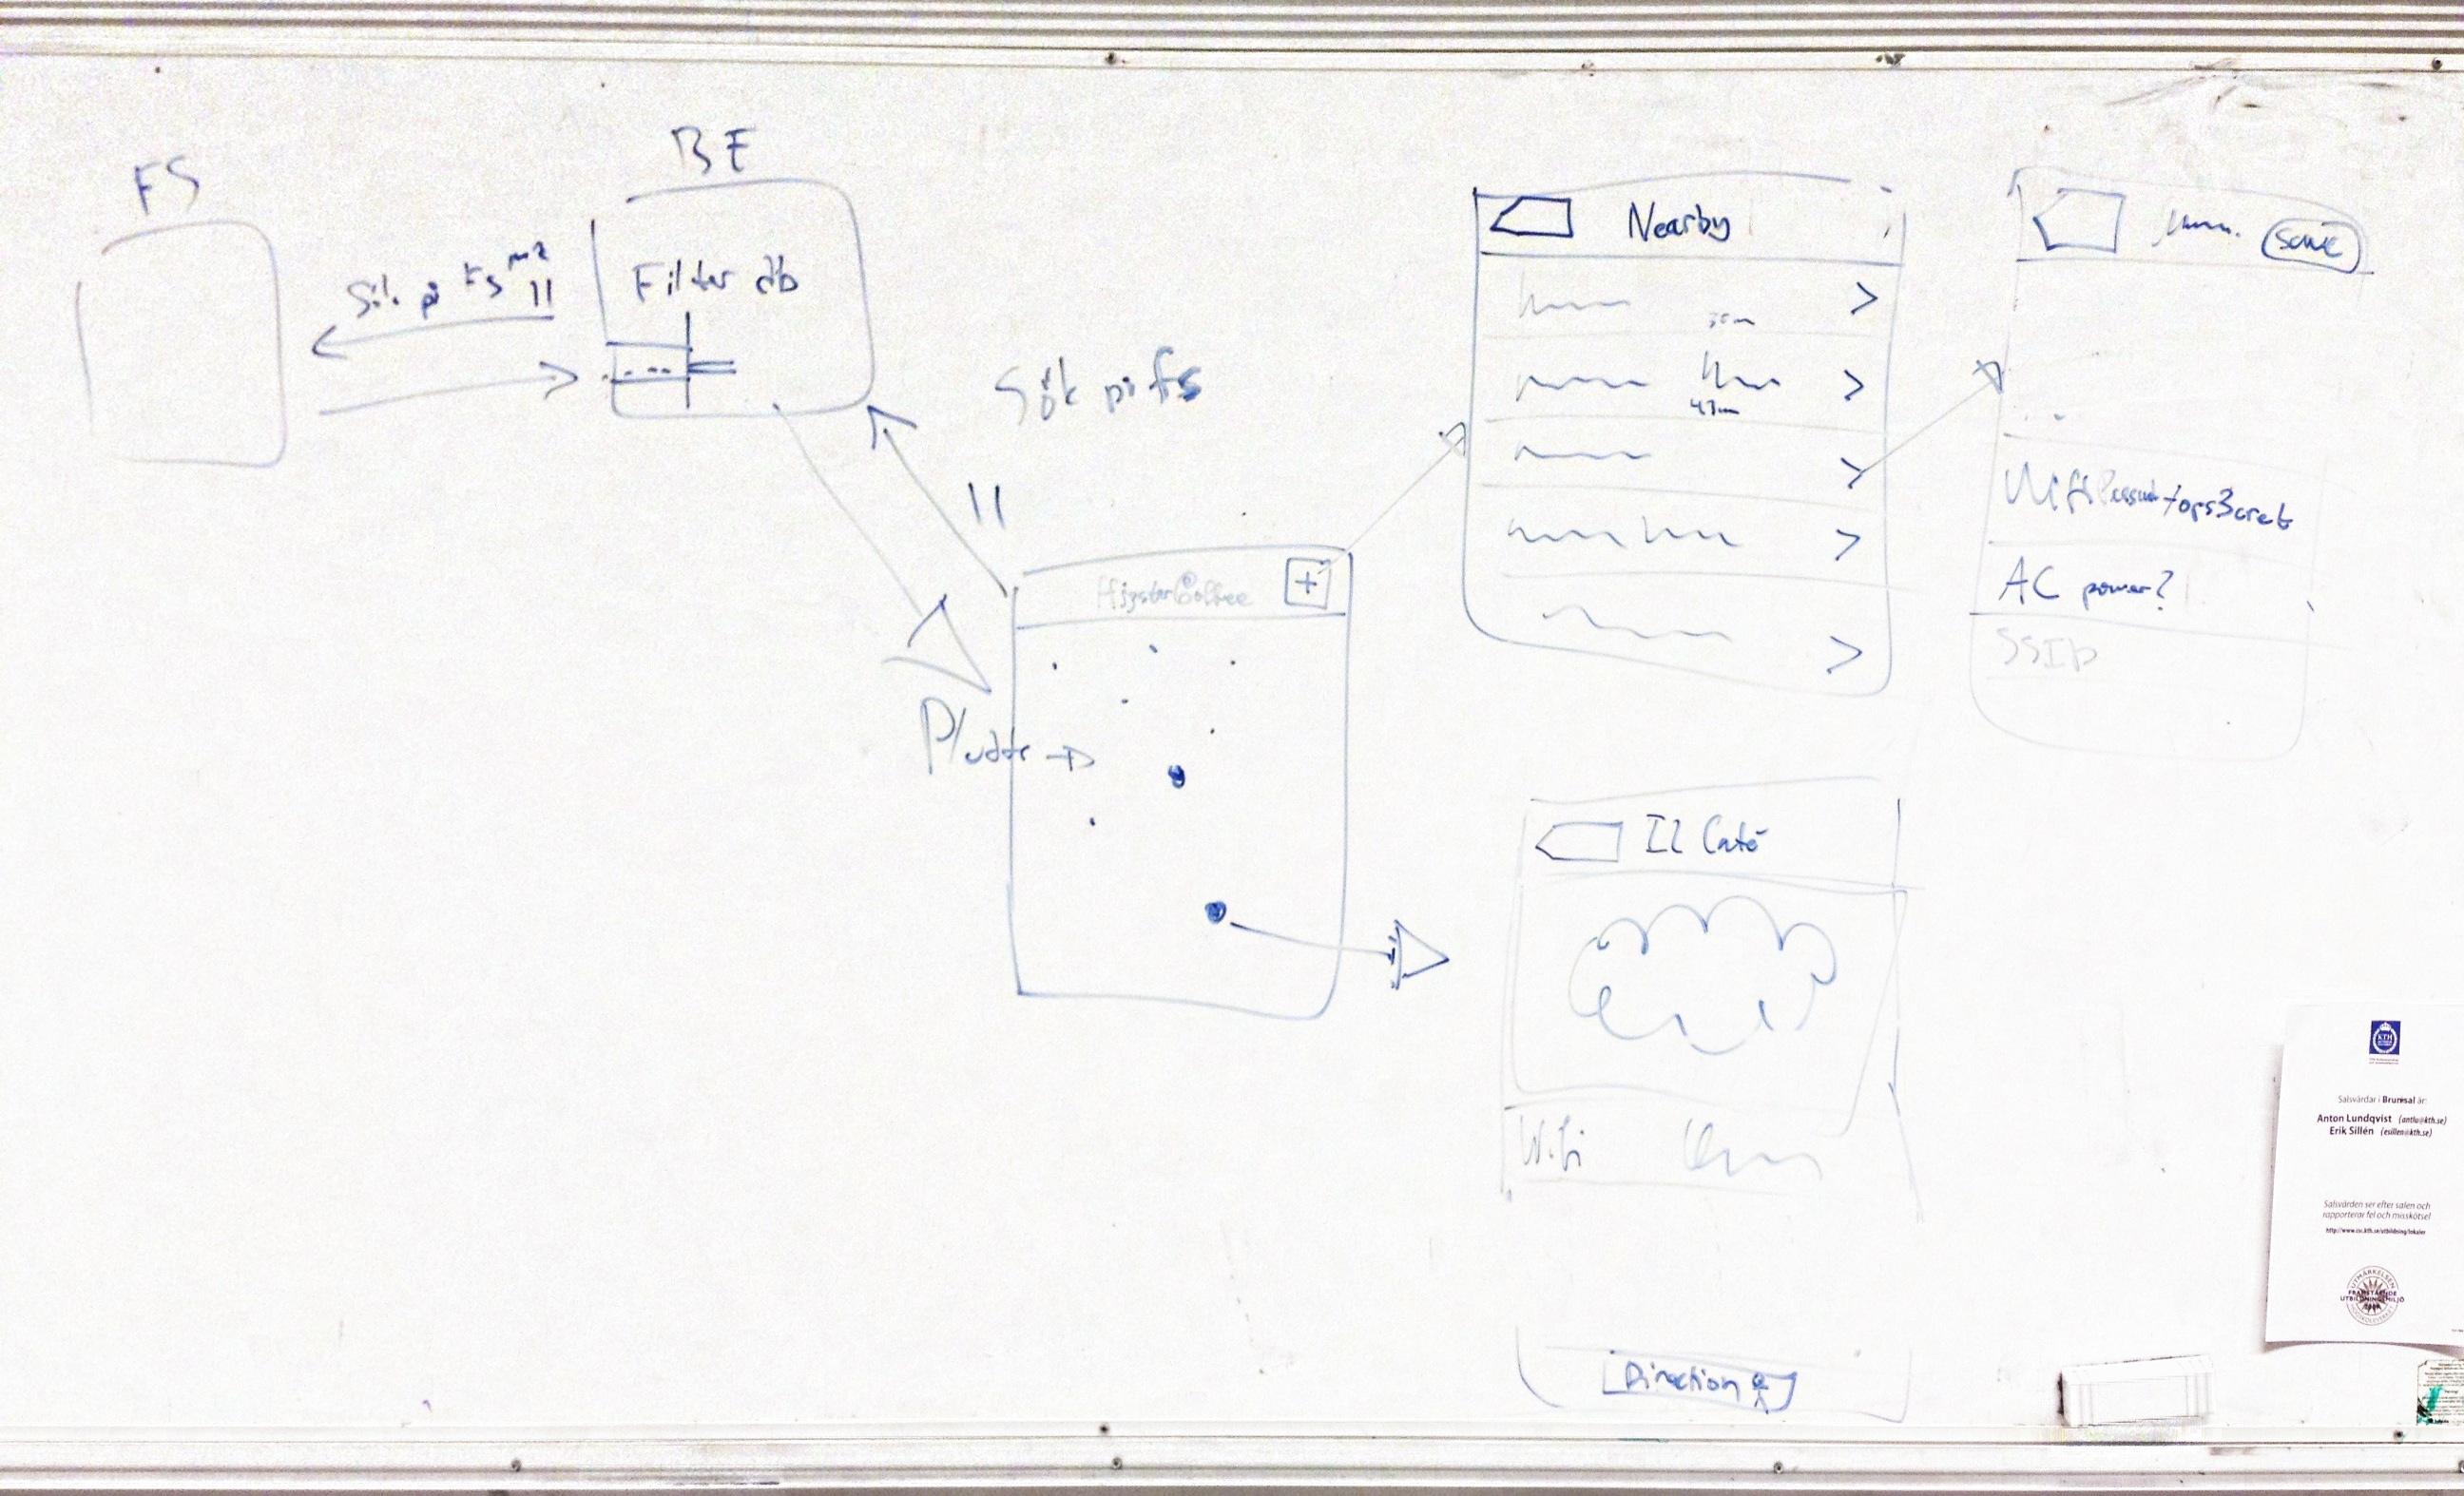 FS
BE
Sök på FS
Filter db
Sök på fs
HipsterCoffee
+
Nearby
43m
save
Wifi Password topS3cret
AC power?
SSID
Il Café
Wifi
Direction
KTH
Salsvärdar i Brunsal är:
Anton Lundqvist (antlu@kth.se)
Erik Sillén (esillen@kth.se)
Salsvärden ser efter salen och
rapporterar fel och misskötsel
http://www.csc.kth.se/utbildning/lokaler
UTMÄRKELSEN
FRAMSTÅENDE
UTBILDNINGSMILJÖ